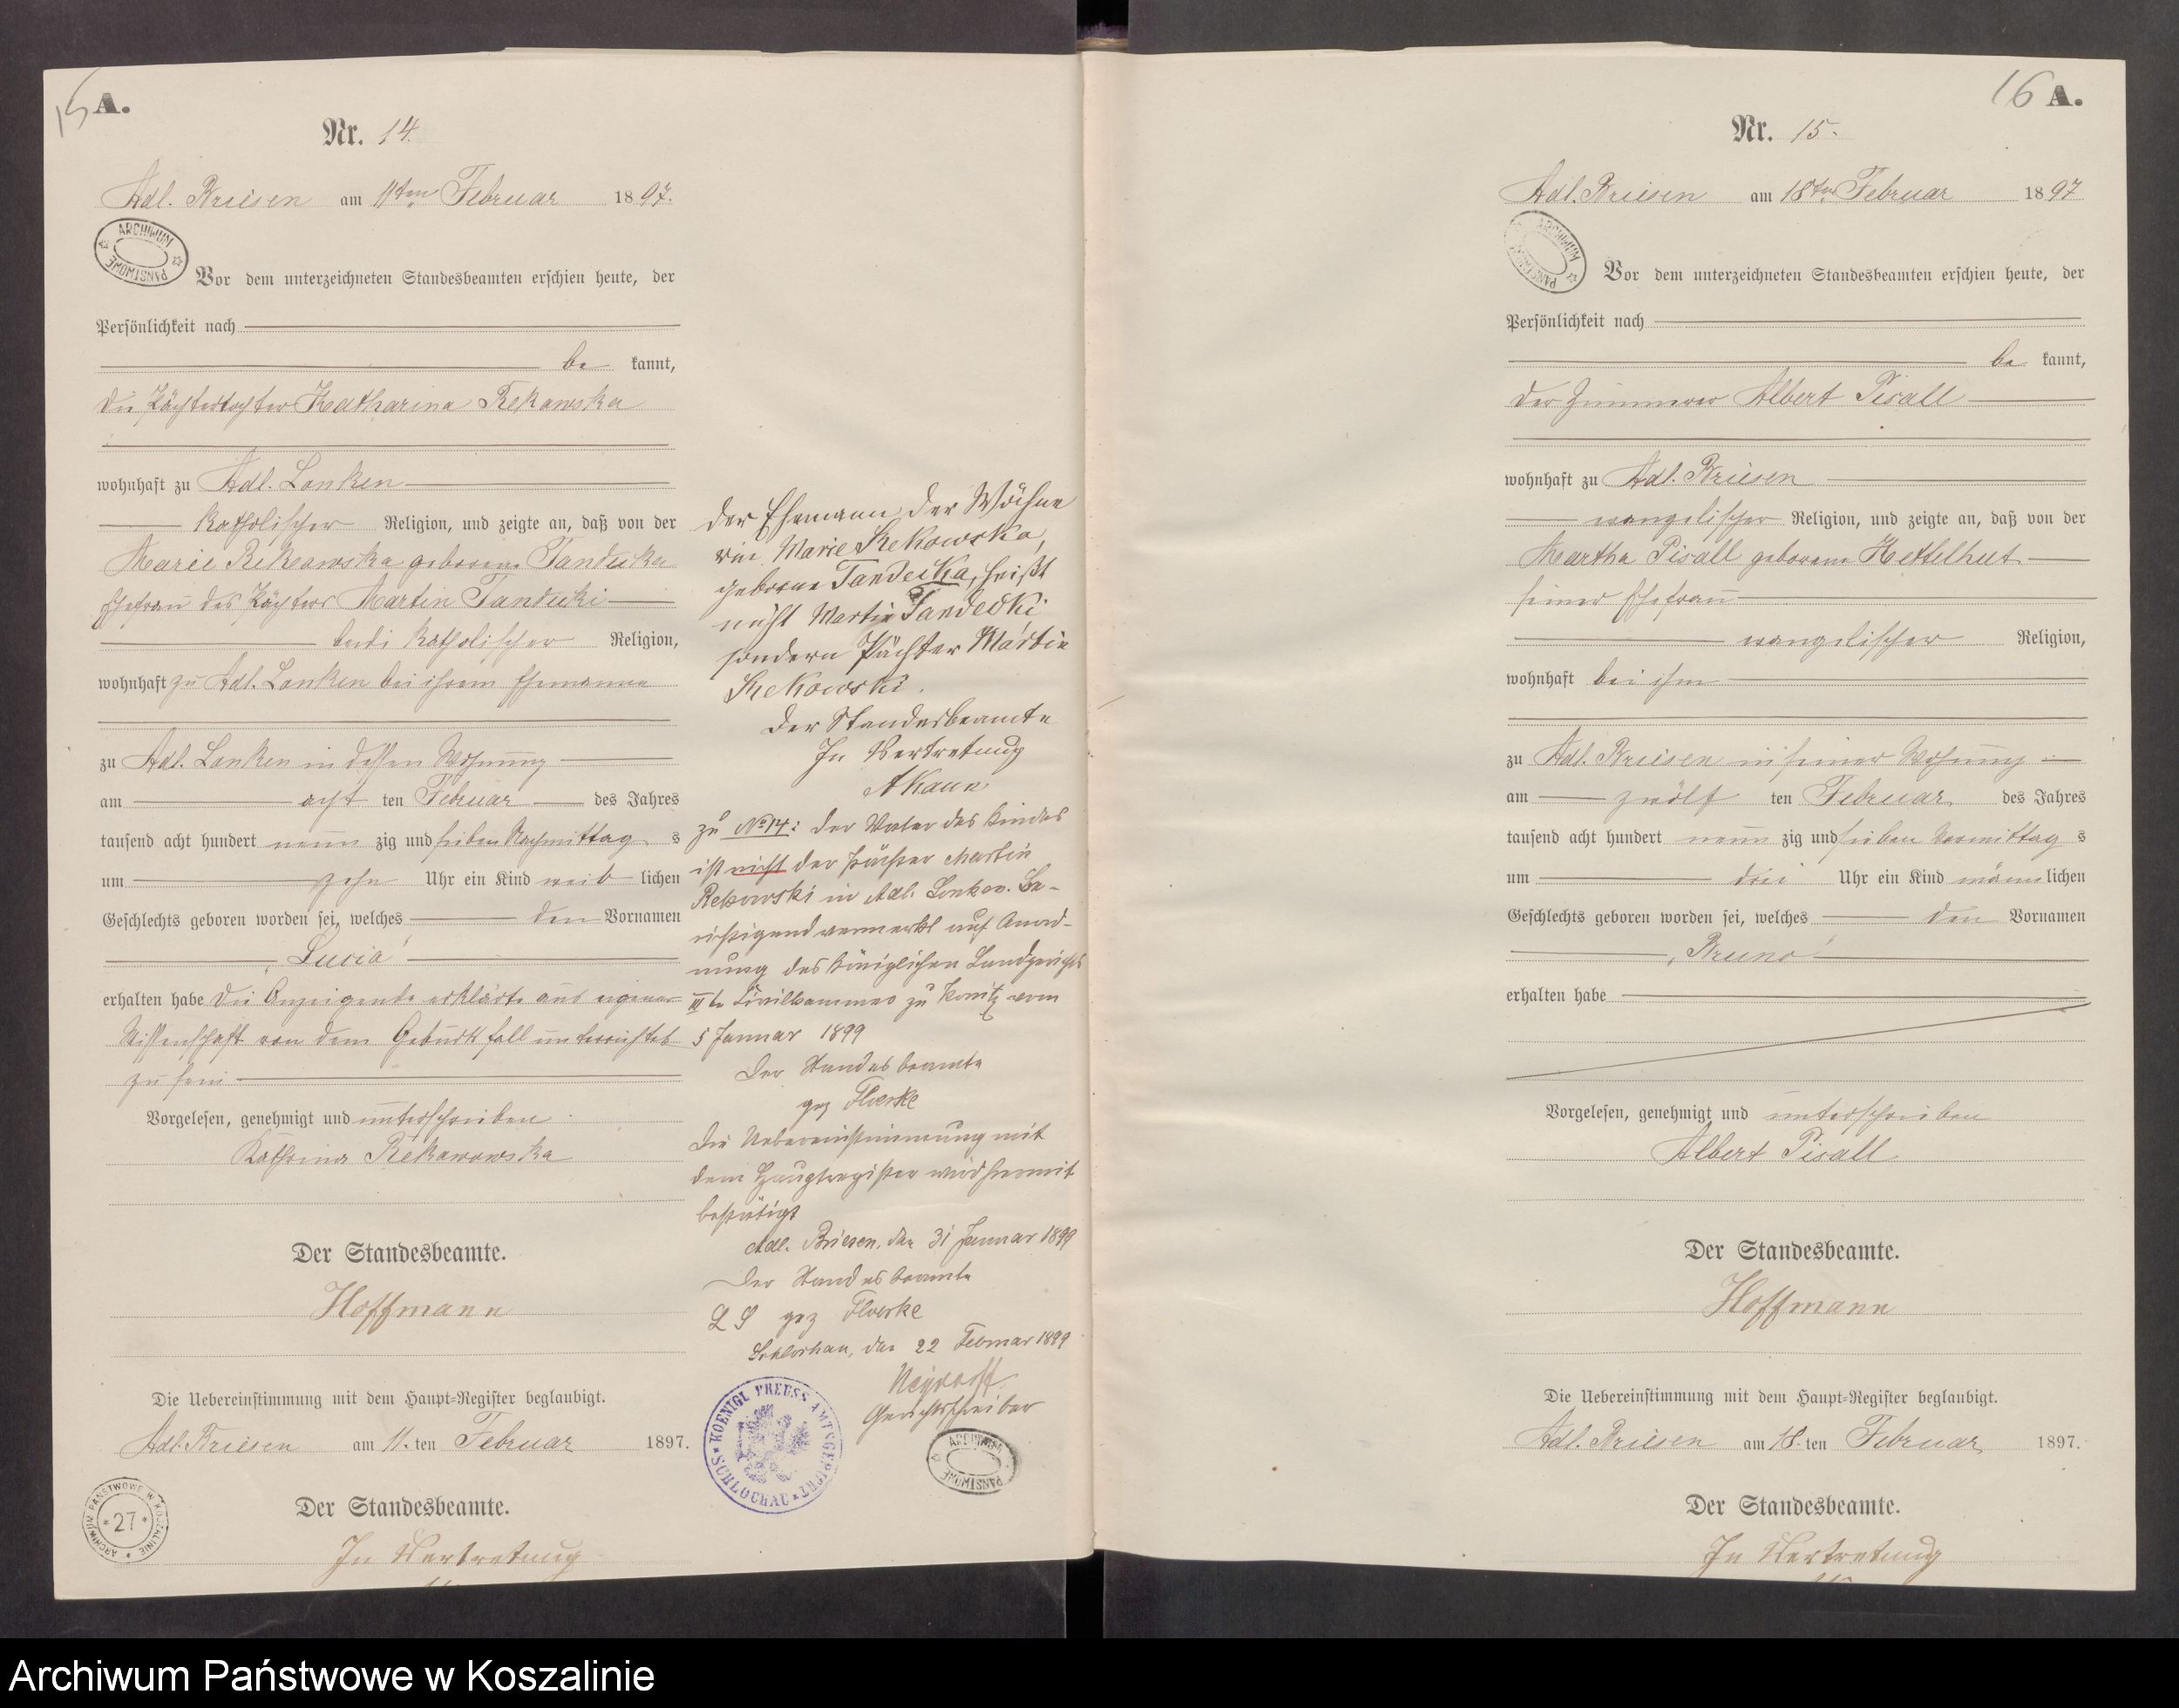 15 A.
Nr. 14.
Adl. Briesen am 11ten Februar 1897.
ARCHIWUM PAŃSTWOWE
Vor dem unterzeichneten Standesbeamten erschien heute, der
Persönlichkeit nach
be kannt,
die Pächtertochter Katharina Rekowska
wohnhaft zu Adl. Lanken
katholischer Religion, und zeigte an, daß von der
Marie Rekowska geborene Tandecka
Ehefrau des Pächters Martin Tandecki
beide katholischer Religion,
wohnhaft zu Adl. Lanken bei ihrem Ehemanne
zu Adl. Lanken in dessen Wohnung
am acht ten Februar des Jahres
tausend acht hundert neun zig und sieben Nachmittag s
um zehn Uhr ein Kind weib lichen
Geschlechts geboren worden sei, welches den Vornamen
„Lucia“
erhalten habe Die Anzeigende erklärte aus eigener
Wissenschaft von dem Geburtsfall unterrichtet
zu sein
Vorgelesen, genehmigt und unterschrieben
Katharina Rekawowska
Der Standesbeamte.
Hoffmann
Die Uebereinstimmung mit dem Haupt-Register beglaubigt.
Adl. Briesen am 11. ten Februar 1897.
Der Standesbeamte.
In Vertretung
ARCHIWUM PAŃSTWOWE W KOSZALINIE * 27 *
Der Ehemann der Wöchne
rin Marie Rekowska,
geborne Tandecka, heißt
nicht Martin Tandecki
sondern Pächter Martin
Rekowski.
Der Standesbeamte
In Vertretung
AKann
zu No 14: Der Vater des Kindes
ist nicht der Pächter Martin
Rekowski in Adl. Lanken. Be-
richtigend vermerkt auf Anord-
nung des Königlichen Landgerichts
III te Civilkammer zu Konitz vom
5 Januar 1899
Der Standesbeamte
gez Floerke
Die Uebereinstimmung mit
dem Hauptregister wird hiermit
bestätigt
Adl. Briesen, den 31 Januar 1899
Der Standesbeamte
L S gez Floerke
Schlochau, den 22 Februar 1899
Gerichtsschreiber
KOENIGL. PREUSS. AMTSGERICHT * SCHLOCHAU *
ARCHIWUM PAŃSTWOWE
16 A.
Nr. 15.
Adl. Briesen am 18ten Februar 1897
ARCHIWUM PAŃSTWOWE
Vor dem unterzeichneten Standesbeamten erschien heute, der
Persönlichkeit nach
be kannt,
der Zimmerer Albert Pisall
wohnhaft zu Adl. Briesen
evangelischer Religion, und zeigte an, daß von der
Martha Pisall geborene Hettelhut
seiner Ehefrau
evangelischer Religion,
wohnhaft bei ihm
zu Adl. Briesen in seiner Wohnung
am zwölf ten Februar des Jahres
tausend acht hundert neun zig und sieben Vormittag s
um drei Uhr ein Kind männ lichen
Geschlechts geboren worden sei, welches den Vornamen
„Bruno“
erhalten habe
Vorgelesen, genehmigt und unterschrieben
Albert Pisall
Der Standesbeamte.
Hoffmann
Die Uebereinstimmung mit dem Haupt-Register beglaubigt.
Adl. Briesen am 18. ten Februar 1897.
Der Standesbeamte.
In Vertretung
Archiwum Państwowe w Koszalinie